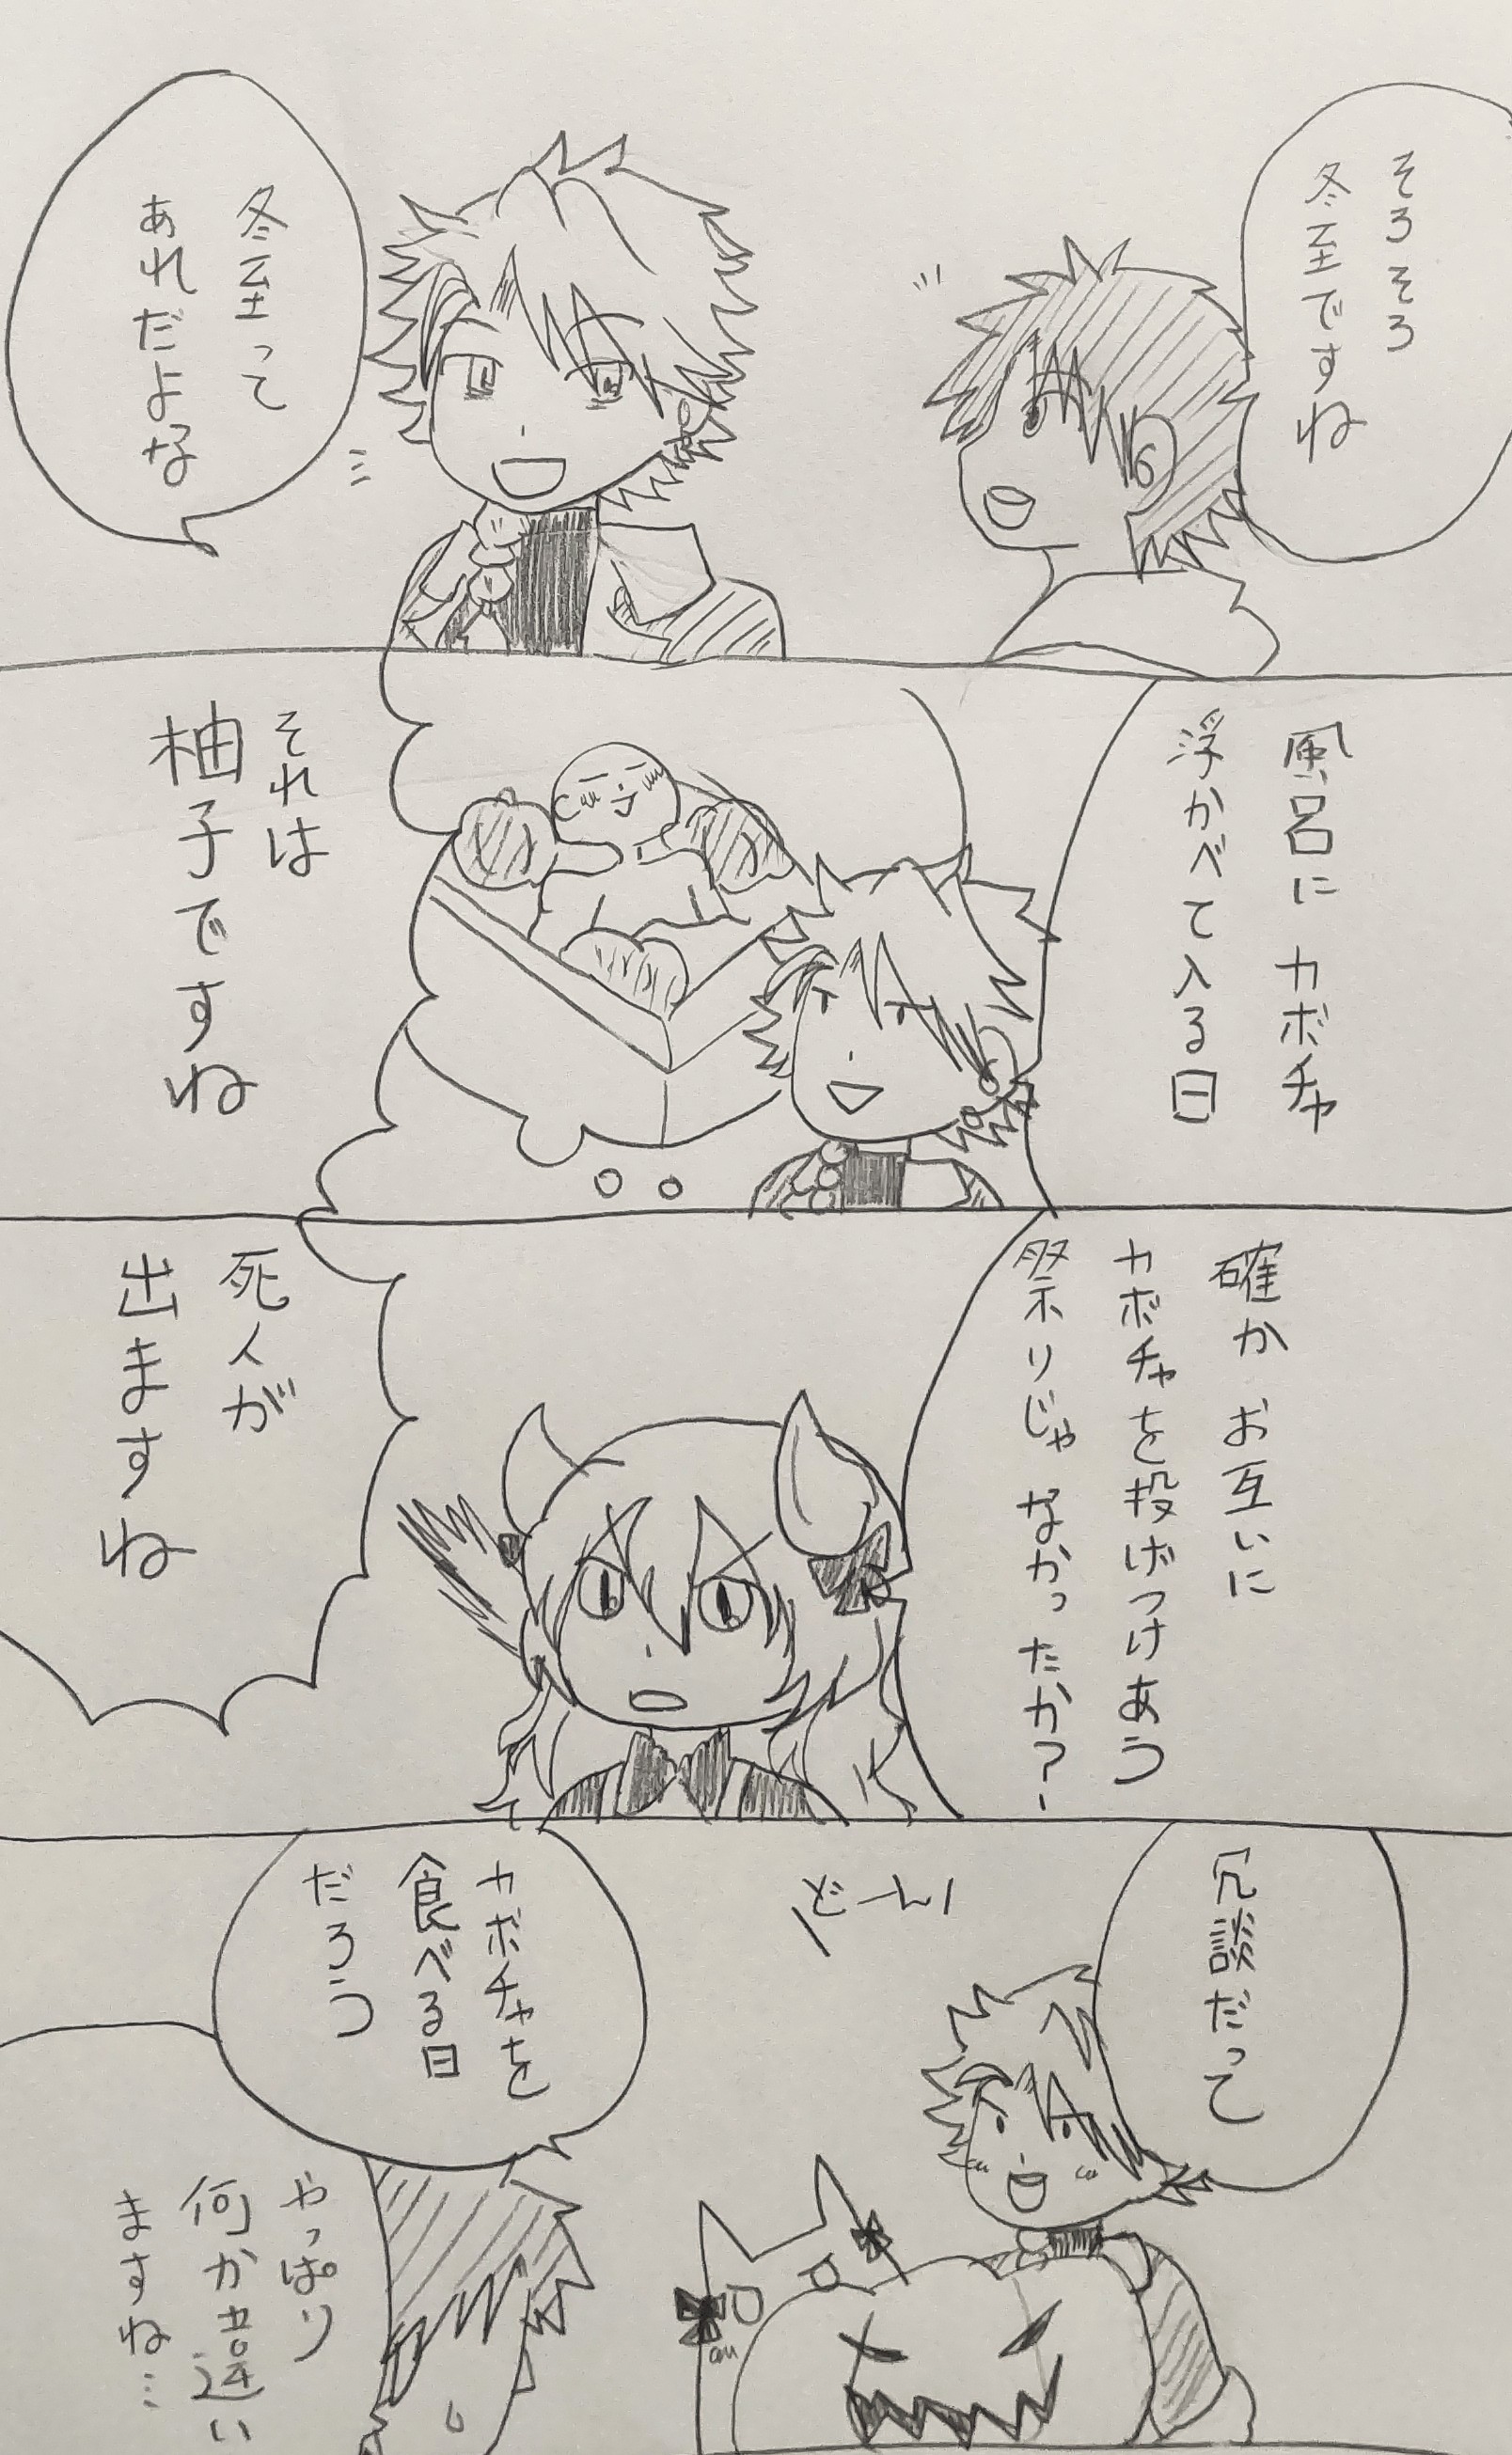 そろそろ
冬至ですね
冬至って
あれだよな
風呂に カボチャ
浮かべて入る日
それは
柚子ですね
確か お互いに
カボチャを投げつけあう
祭りじゃ なかったか？
死人が
出ますね
冗談だって
どーん！
カボチャを
食べる日
だろう
やっぱり
何か違い
ますね…